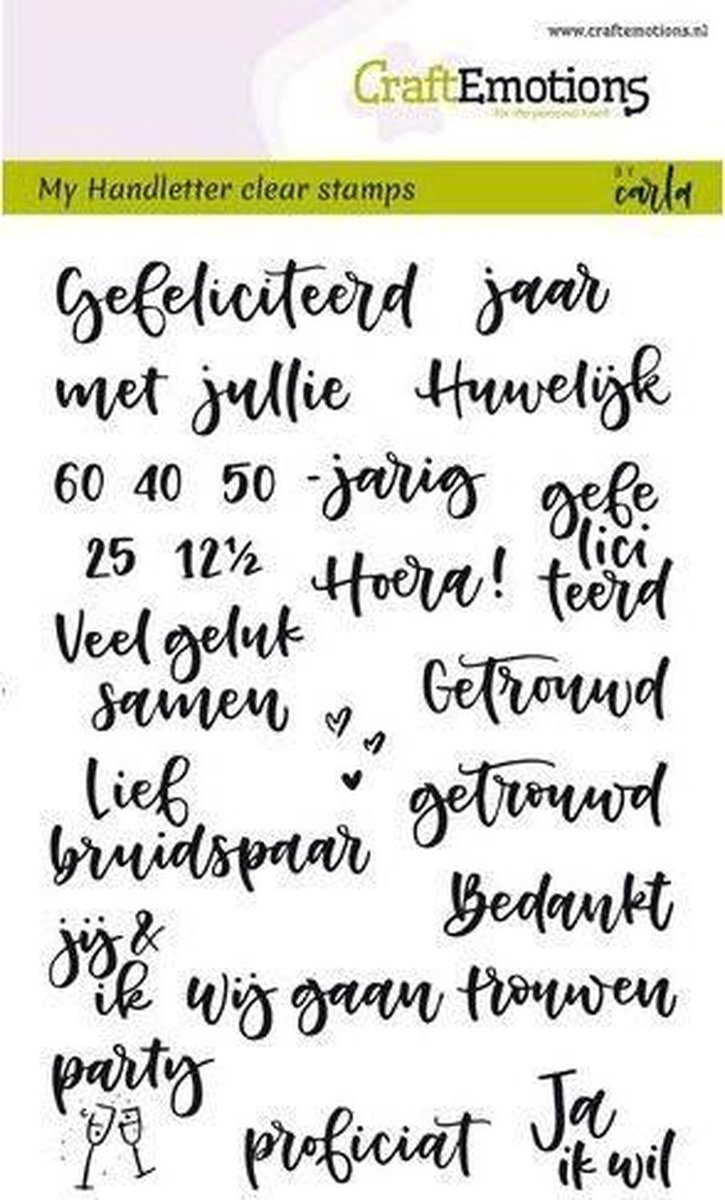 www.craftemotions.nl
CraftEmotions
for the personal touch
My Handletter clear stamps
BY carla
Gefeliciteerd jaar
met jullie Huwelijk
60 40 50 -jarig
gefe
lici
teerd
25 12½ Hoera!
Veel geluk
samen
Getrouwd
Lief
bruidspaar
getrouwd
Bedankt
jij &
ik
wij gaan trouwen
party
proficiat
Ja
ik wil